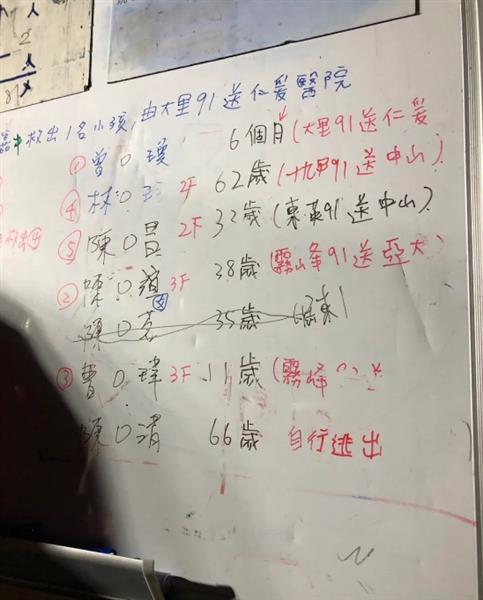 人
2
人
救出1名小孩,由大里91送仁愛醫院
① 曾O 6個月(大里91送仁愛
④ 林O 2F 62歲(十九甲91送中山)
⑤ 陳O昌 2F 32歲(東英91送中山)
② 陳O 3F 38歲(霧峰91送亞大)
陳O 35歲
③ 曾O瑋 3F 11歲(霧峰
陳O清 66歲 自行逃出